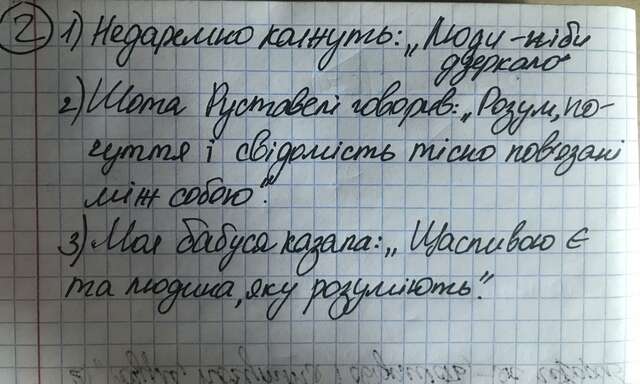 2 1) Недаремно кажуть: „Люди – ніби
дзеркало“
2) Шота Руставелі говорив: „Розум, по-
чуття і свідомість тісно пов'язані
між собою“.
3) Моя бабуся казала: „Щасливою є
та людина, яку розуміють“.